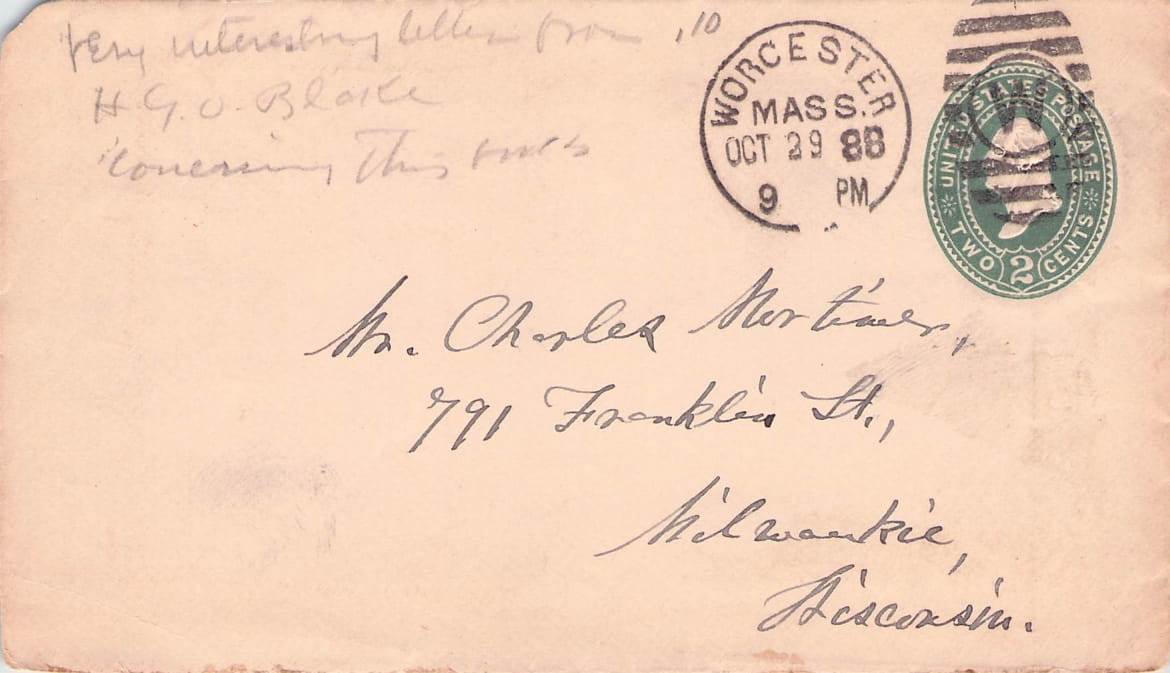 Very interesting letter from .10
H.G.O. Blake
concerning this book
WORCESTER
MASS.
OCT 29 88
9 PM
UNITED STATES POSTAGE
W
TWO 2 CENTS
Mr. Charles Mortimer,
791 Franklin St.,
Milwaukie,
Wisconsin.